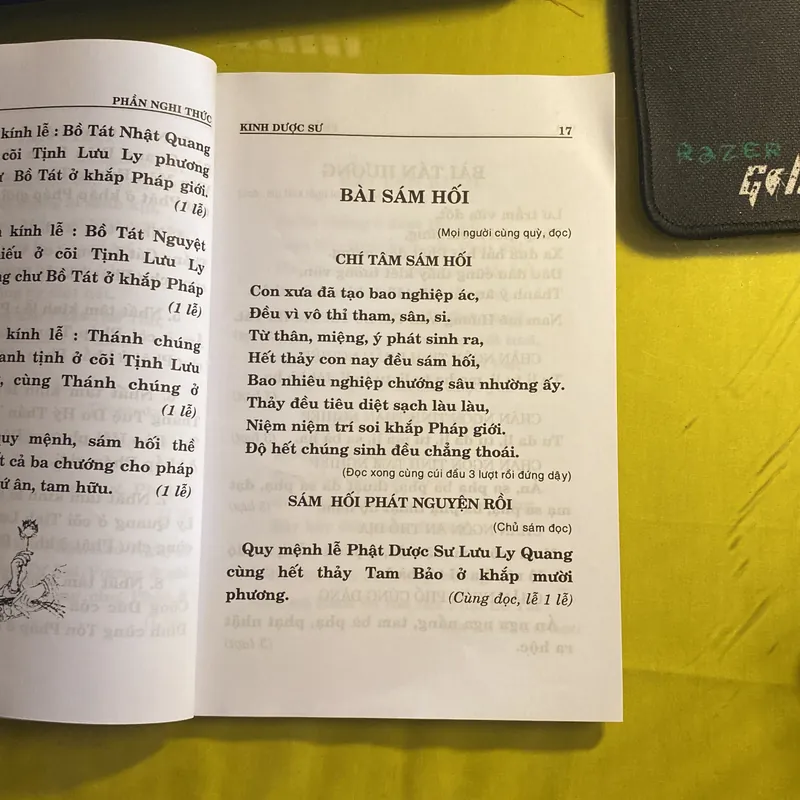 PHẦN NGHI THỨC
kính lễ : Bồ Tát Nhật Quang
cõi Tịnh Lưu Ly phương
Bồ Tát ở khắp Pháp giới.
(1 lễ)
kính lễ : Bồ Tát Nguyệt
ở cõi Tịnh Lưu Ly
chư Bồ Tát ở khắp Pháp
(1 lễ)
kính lễ : Thánh chúng
tịnh ở cõi Tịnh Lưu
cùng Thánh chúng ở
(1 lễ)
mệnh, sám hối thề
cả ba chướng cho pháp
ân, tam hữu. (1 lễ)
KINH DƯỢC SƯ 17
BÀI SÁM HỐI
(Mọi người cùng quỳ, đọc)
CHÍ TÂM SÁM HỐI
Con xưa đã tạo bao nghiệp ác,
Đều vì vô thỉ tham, sân, si.
Từ thân, miệng, ý phát sinh ra,
Hết thảy con nay đều sám hối,
Bao nhiêu nghiệp chướng sâu nhường ấy.
Thảy đều tiêu diệt sạch làu làu,
Niệm niệm trí soi khắp Pháp giới.
Độ hết chúng sinh đều chẳng thoái.
(Đọc xong cùng cúi đầu 3 lượt rồi đứng dậy)
SÁM HỐI PHÁT NGUYỆN RỒI
(Chủ sám đọc)
Quy mệnh lễ Phật Dược Sư Lưu Ly Quang
cùng hết thảy Tam Bảo ở khắp mười
phương. (Cùng đọc, lễ 1 lễ)
RAZER